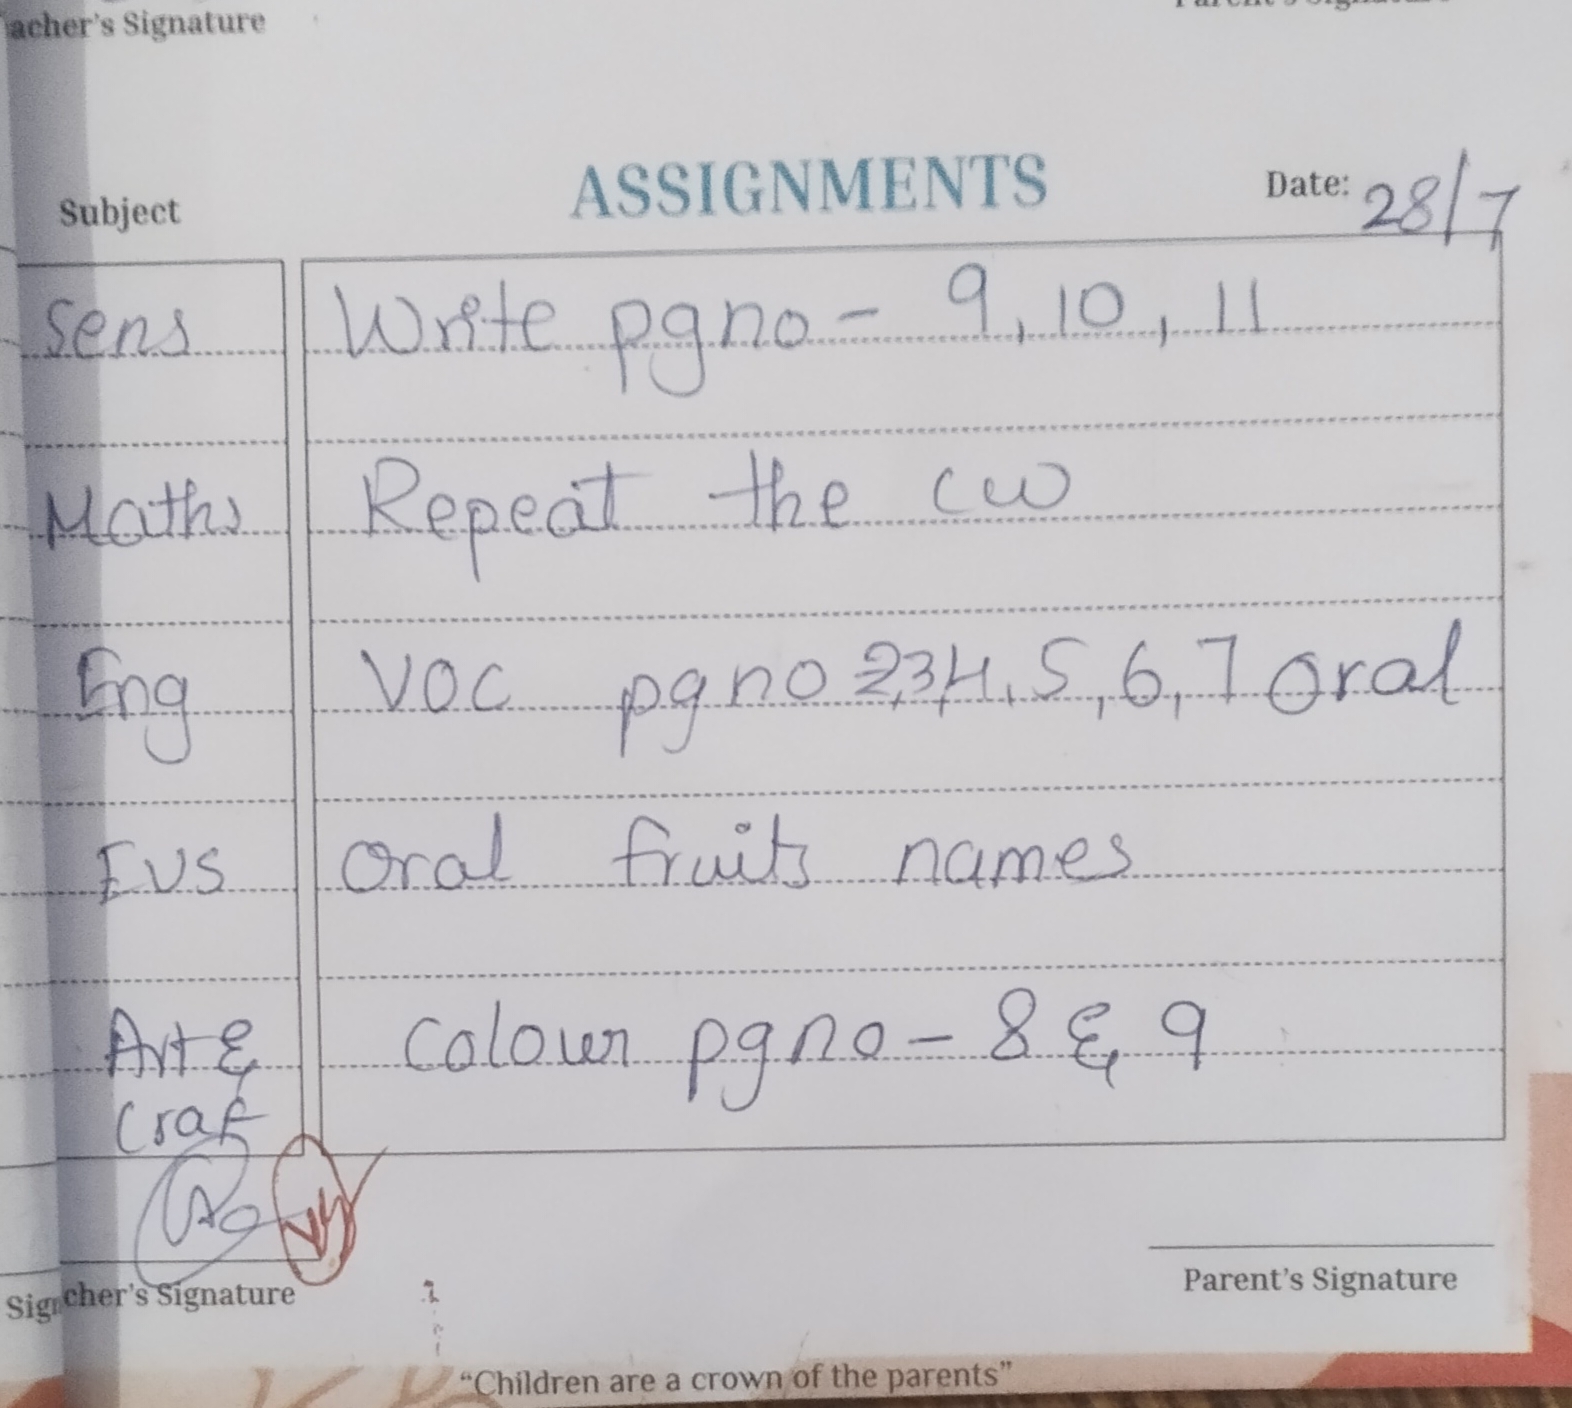 acher's Signature
ASSIGNMENTS
Subject
Date: 28/7
Sens Write pg no - 9, 10, 11
Maths Repeat the cw
Eng voc pg no 2,3,4, 5, 6, 7 oral
EVS oral fruits names
Art & colour pg no - 8 & 9
Craf
cher's Signature
Parent's Signature
"Children are a crown of the parents"